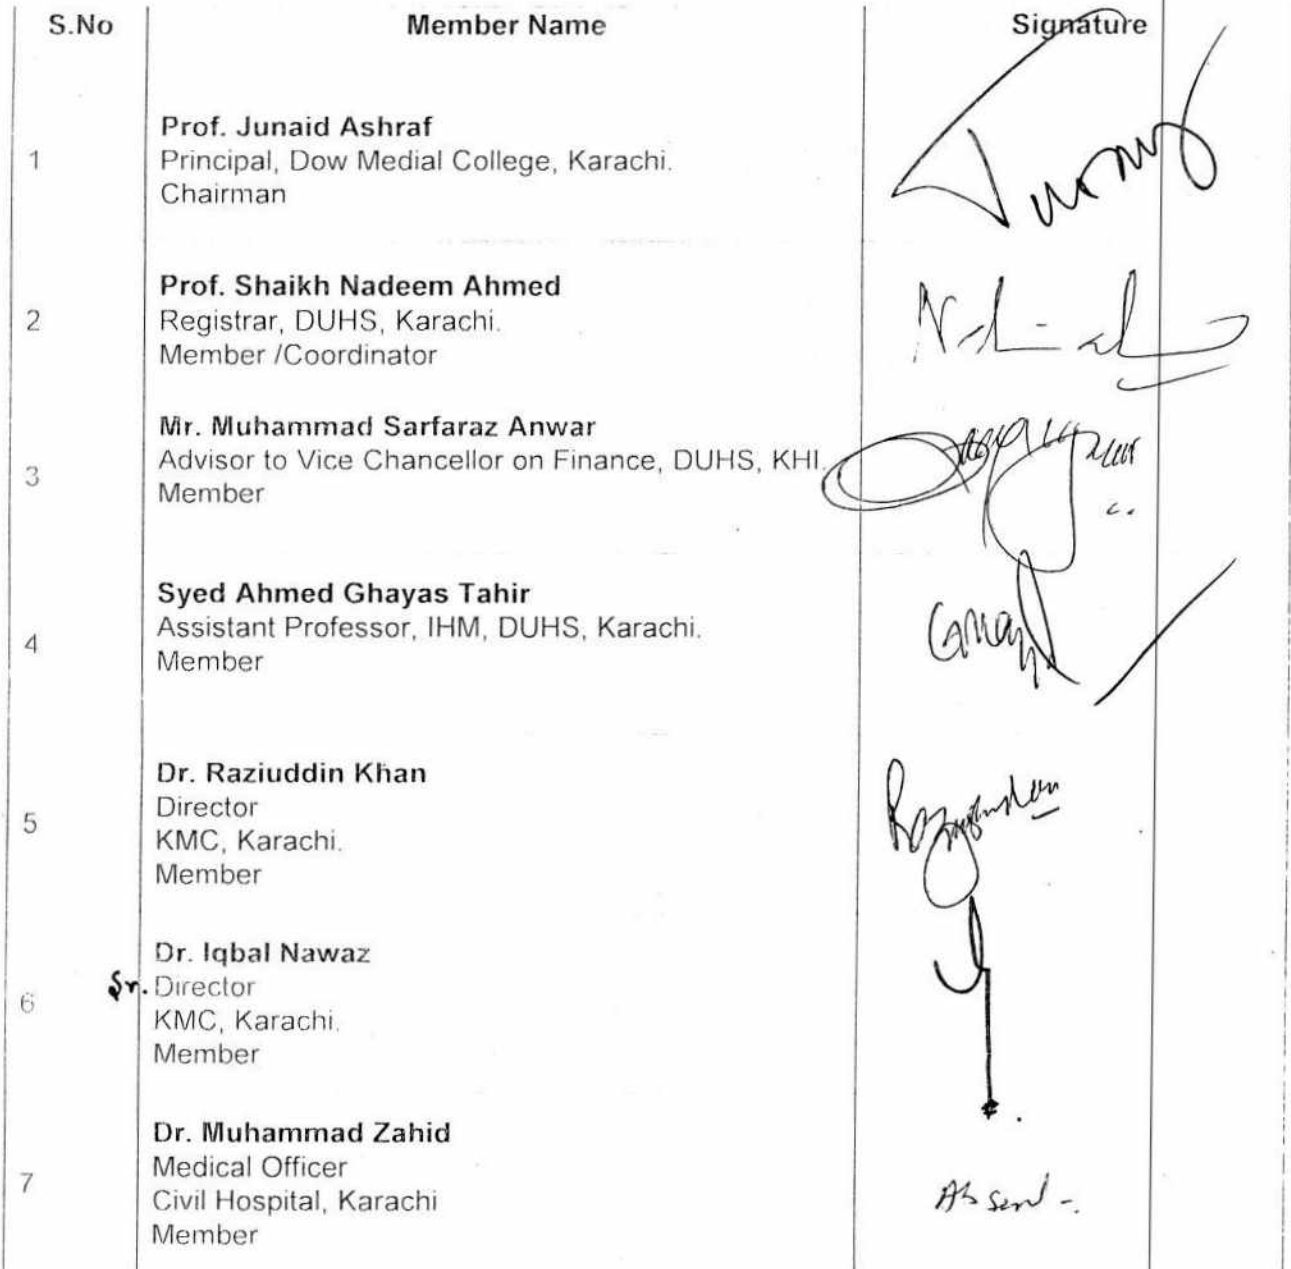 S.No Member Name Signature
1
Prof. Junaid Ashraf
Principal, Dow Medial College, Karachi.
Chairman
2
Prof. Shaikh Nadeem Ahmed
Registrar, DUHS, Karachi.
Member /Coordinator
3
Mr. Muhammad Sarfaraz Anwar
Advisor to Vice Chancellor on Finance, DUHS, KHI.
Member
4
Syed Ahmed Ghayas Tahir
Assistant Professor, IHM, DUHS, Karachi.
Member
5
Dr. Raziuddin Khan
Director
KMC, Karachi.
Member
6
Dr. Iqbal Nawaz
Sr. Director
KMC, Karachi.
Member
7
Dr. Muhammad Zahid
Medical Officer
Civil Hospital, Karachi
Member
Absent -.